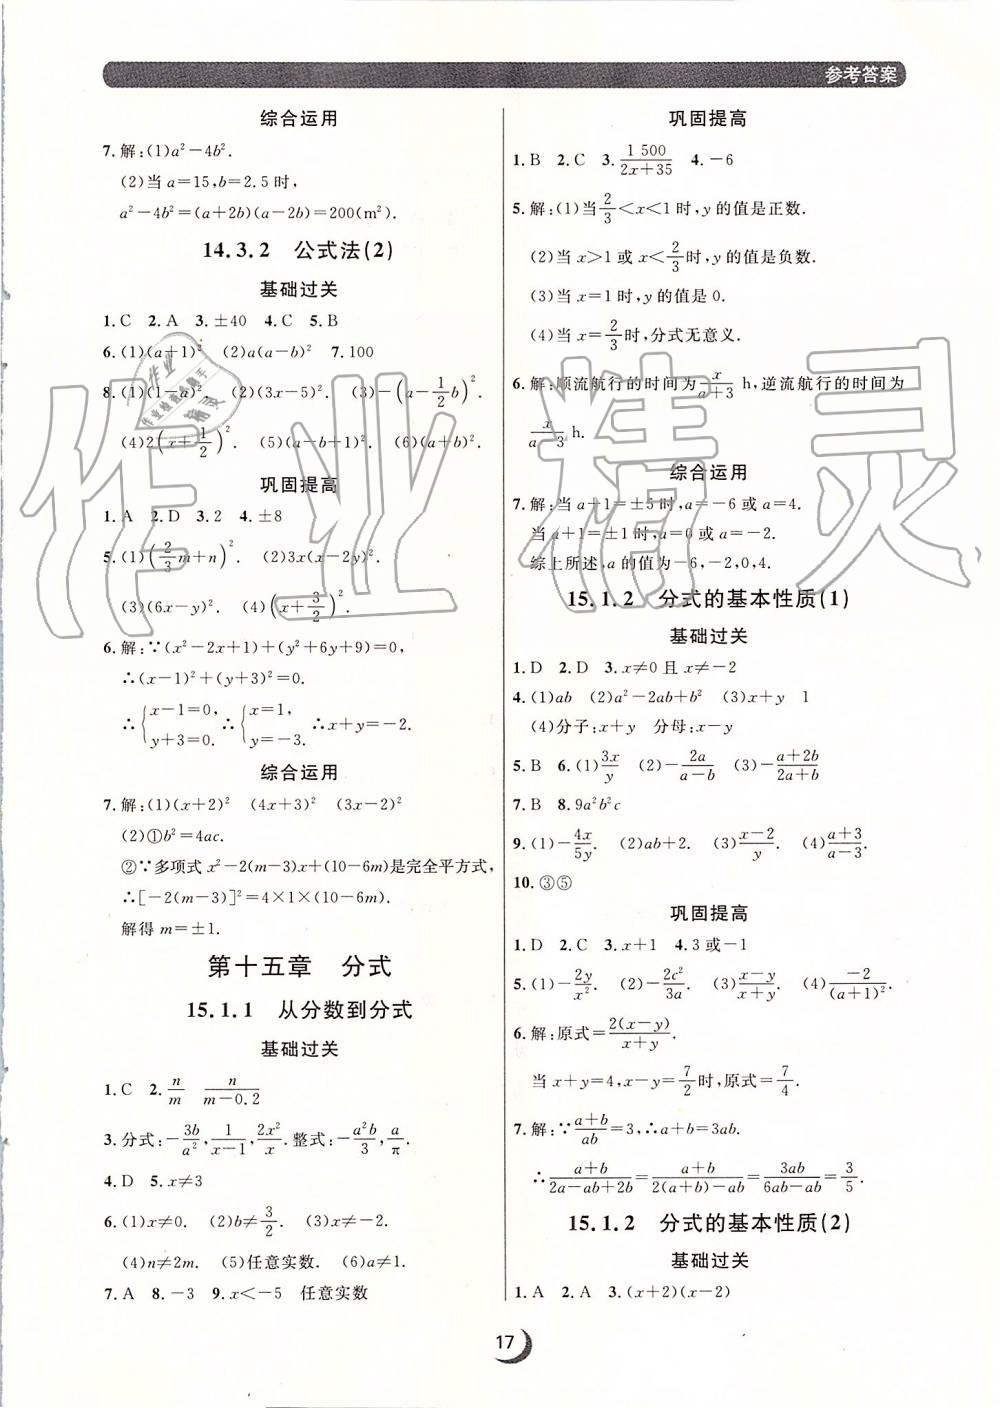 参考答案
综合运用
7. 解:(1)a²－4b².
(2)当 a＝15,b＝2.5 时,
a²－4b²＝(a＋2b)(a－2b)＝200(m²).
14.3.2 公式法(2)
基础过关
1. C 2. A 3. ±40 4. C 5. B
6. (1)(a＋1)² (2)a(a－b)² 7. 100
8. (1)(1－a)². (2)(3x－5)². (3)－(a－1/2 b)².
(4)2(x＋1/2)². (5)(a－b＋1)². (6)(a＋b)².
巩固提高
1. A 2. D 3. 2 4. ±8
5. (1)(2/3 m＋n)². (2)3x(x－2y)².
(3)(6x－y)². (4)(x＋3/2)².
6. 解:∵(x²－2x＋1)＋(y²＋6y＋9)＝0,
∴(x－1)²＋(y＋3)²＝0.
∴{x－1＝0, y＋3＝0. ∴{x＝1, y＝－3. ∴x＋y＝－2.
综合运用
7. 解:(1)(x＋2)² (4x＋3)² (3x－2)²
(2)①b²＝4ac.
②∵多项式 x²－2(m－3)x＋(10－6m)是完全平方式,
∴[－2(m－3)]²＝4×1×(10－6m).
解得 m＝±1.
第十五章 分式
15.1.1 从分数到分式
基础过关
1. C 2. n/m n/(m－0.2)
3. 分式:－3b/a²,1/(x－1),2x²/x. 整式:－a²b/3,a/π.
4. D 5. x≠3
6. (1)x≠0. (2)b≠3/2. (3)x≠－2.
(4)n≠2m. (5)任意实数. (6)a≠1.
7. A 8. －3 9. x＜－5 任意实数
巩固提高
1. B 2. C 3. 1 500/(2x＋35) 4. －6
5. 解:(1)当2/3＜x＜1 时,y 的值是正数.
(2)当 x＞1 或 x＜2/3时,y 的值是负数.
(3)当 x＝1 时,y 的值是 0.
(4)当 x＝2/3时,分式无意义.
6. 解:顺流航行的时间为x/(a＋3) h,逆流航行的时间为
x/(a－3) h.
综合运用
7. 解:当 a＋1＝±5 时,a＝－6 或 a＝4.
当 a＋1＝±1 时,a＝0 或 a＝－2.
综上所述,a 的值为－6,－2,0,4.
15.1.2 分式的基本性质(1)
基础过关
1. D 2. D 3. x≠0 且 x≠－2
4. (1)ab (2)a²－2ab＋b² (3)x＋y 1
(4)分子:x＋y 分母:x－y
5. B 6. (1)3x/y (2)－2a/(a－b) (3)－(a＋2b)/(2a＋b)
7. B 8. 9a²b²c
9. (1)－4x/5y. (2)ab＋2. (3)(x－2)/y. (4)(a＋3)/(a－3).
10. ③⑤
巩固提高
1. D 2. C 3. x＋1 4. 3 或－1
5. (1)－2y/x². (2)－2c²/3a. (3)(x－y)/(x＋y). (4)－2/(a＋1)².
6. 解:原式＝2(x－y)/(x＋y).
当 x＋y＝4,x－y＝7/2时,原式＝7/4.
7. 解:∵(a＋b)/ab＝3,∴a＋b＝3ab.
∴(a＋b)/(2a－ab＋2b)＝(a＋b)/(2(a＋b)－ab)＝3ab/(6ab－ab)＝3/5.
15.1.2 分式的基本性质(2)
基础过关
1. A 2. A 3. (x＋2)(x－2)
17
作业精灵